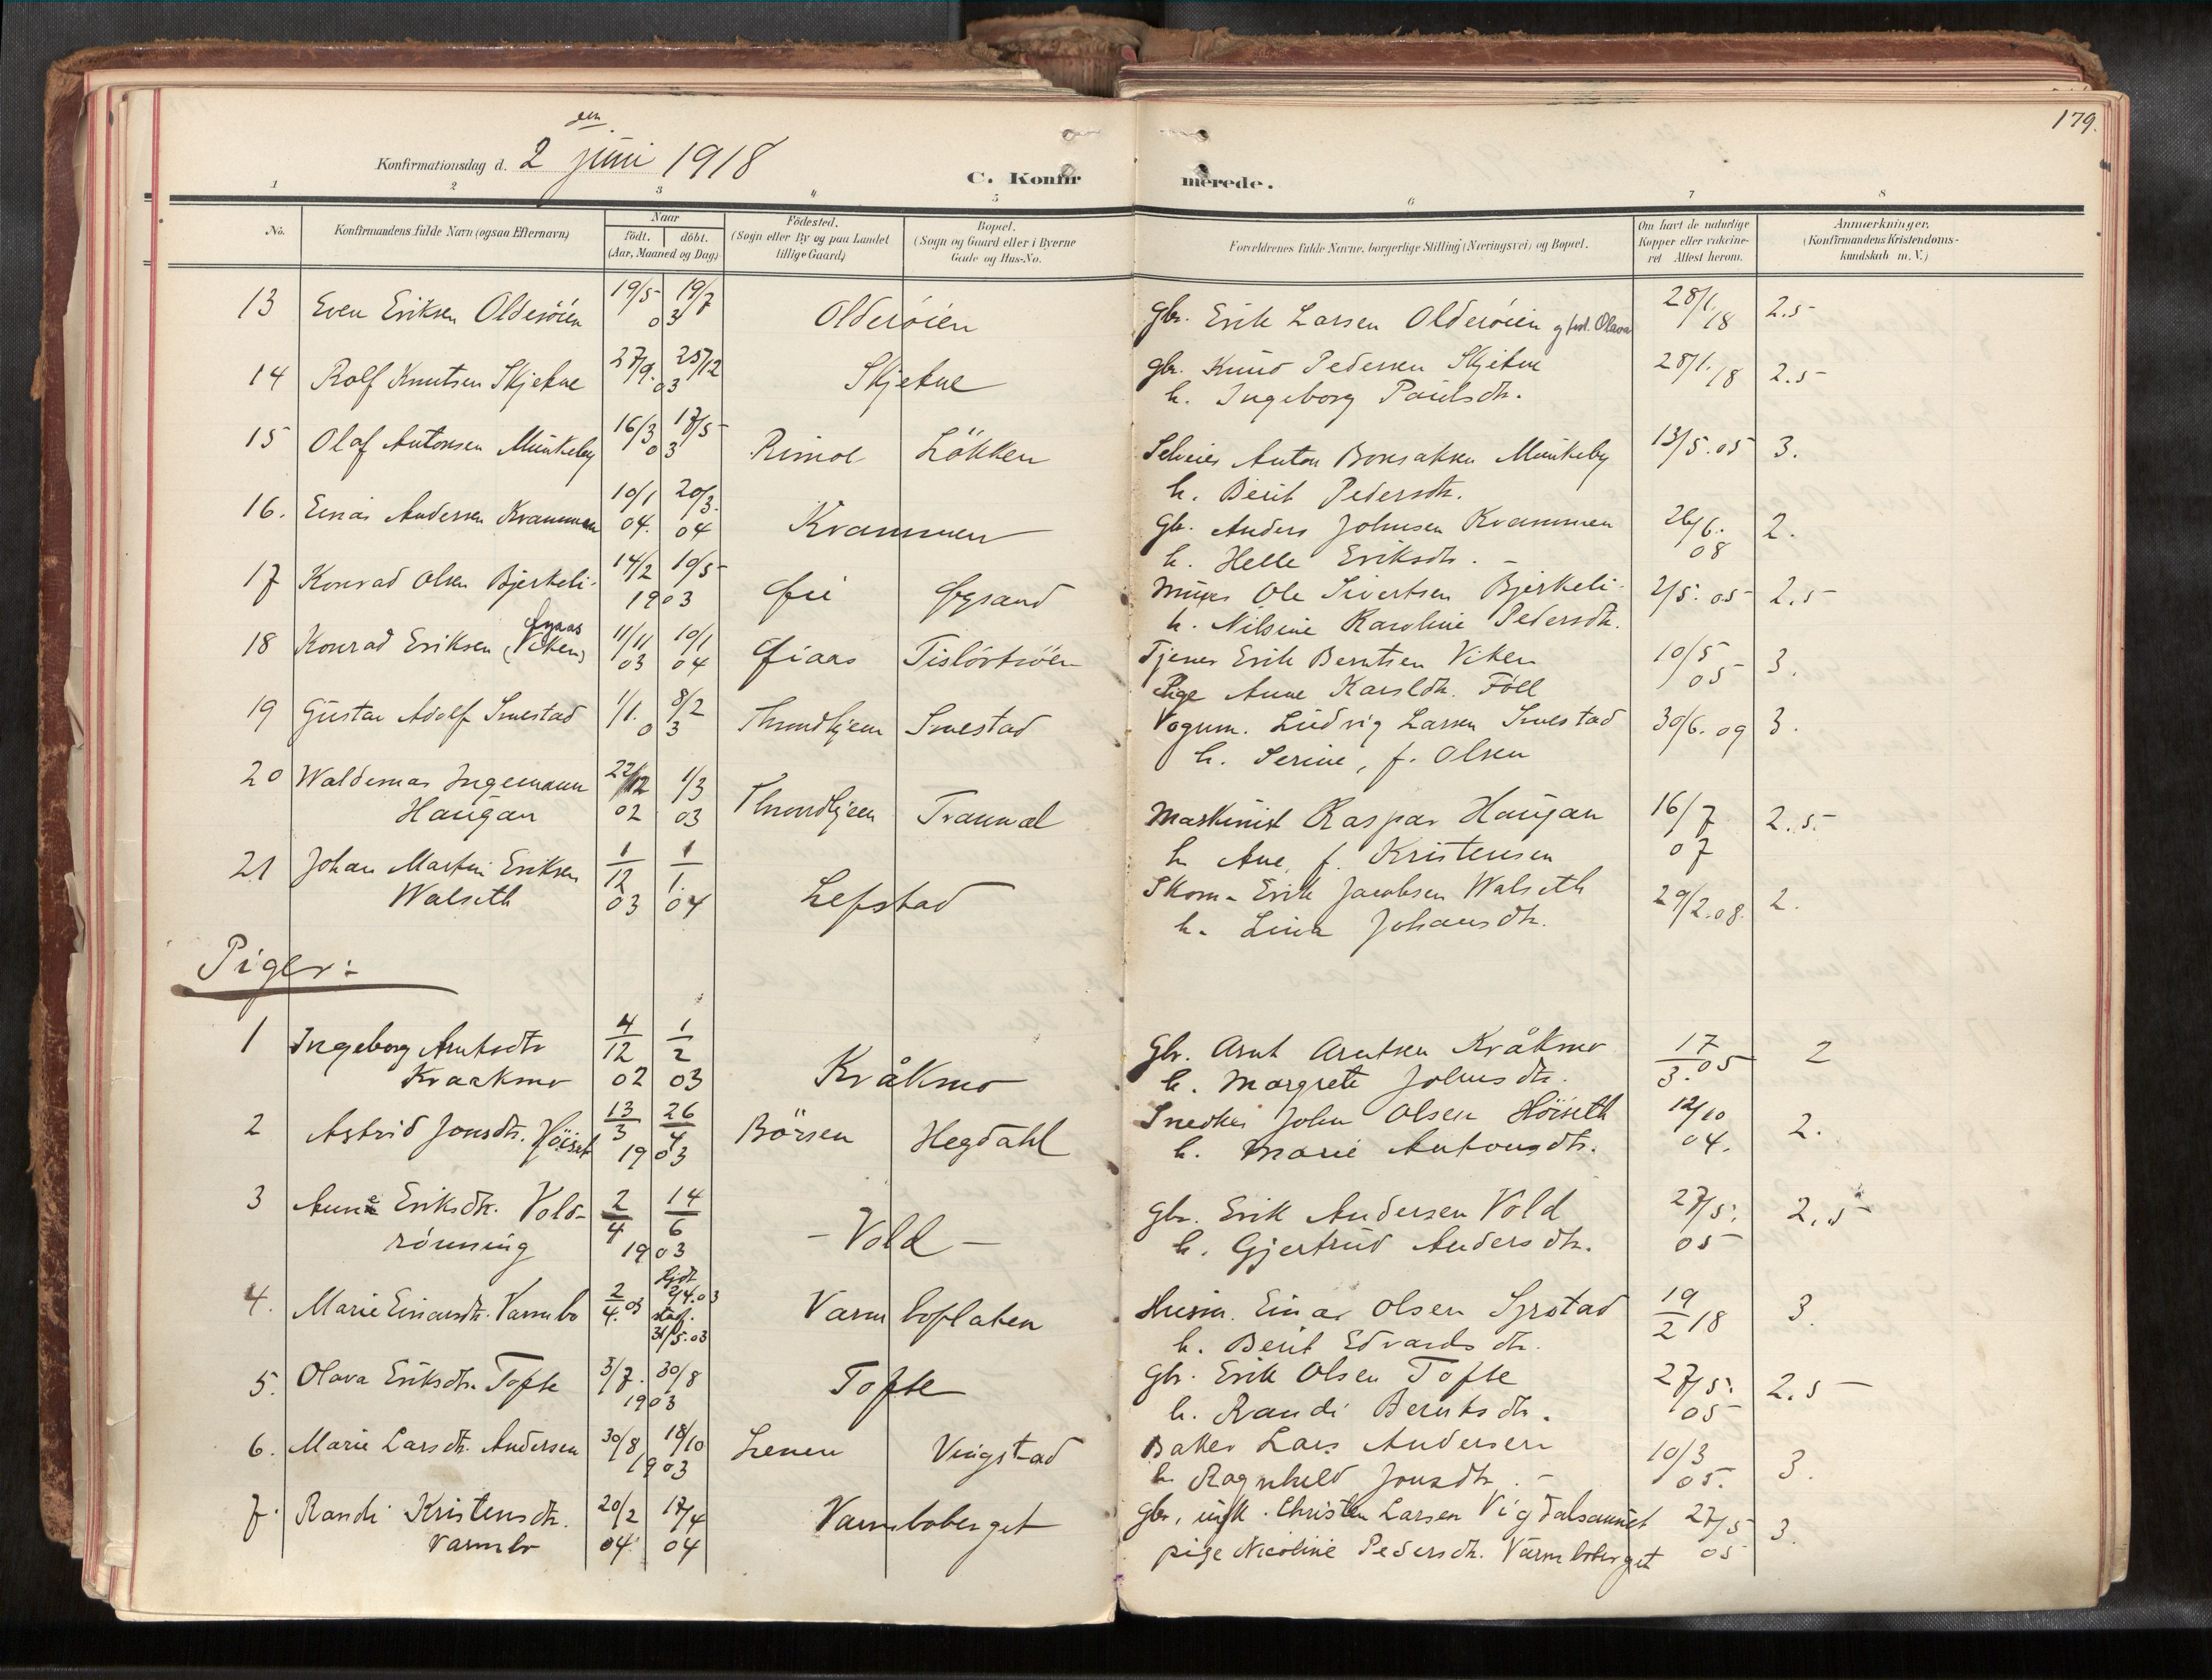 179.
Konfirmationsdag d. 2den juni 1918
C. Konfirmerede.
1 2 3 4 5 6 7 8
No. Konfirmandens fulde Navn (ogsaa Efternavn) Naar födt. döbt. (Aar, Maaned og Dag) Födested. (Sogn eller By og paa Landet tillige Gaard) Bopæl. (Sogn og Gaard eller i Byerne Gade og Hus-No. Forældrenes fulde Navne, borgerlige Stilling (Næringsvei) og Bopæl. Om havt de naturlige Kopper eller vakcineret Attest herom. Anmærkninger. (Konfirmandens Kristendomskundskab m. V.)
13 Even Eriksen Olderöien 19/5 19/7 03 Olderöien Gbr. Erik Larsen Olderöien 28/1. 18 2.5
14 Rolf Knutsen Skjetne 27/9. 25/12 03 Skjetne gbr. Knud Pedersen Skjetne 28/1. 18 2.5
h. Ingeborg Paulsdtr.
15 Olaf Antonsen Munkeby 16/3 17/5 03 Rimol Lökken Selveier Anton Bonsaksen Munkeby 13/5.05 3.
h. Berit Pedersdtr.
16. Einar Andersen Krammen 10/1 04. 20/3. 04 Krammen Gbr. Anders Johnsen Krammen 26/6. 08 2.
h. Helle Eriksdtr. -
17 Konrad Olsen Bjerkeli 14/2 10/5 1903 Öie Öysand Murer Ole Sivertsen Bjerkeli 2/5.05 2.5
h. Nilsine Karoline Pedersdtr.
18 Konrad Eriksen (Viken) 11/11 03 10/1 04 Tjener Erik Berntsen Viken 10/5 05 3.
Pige Anne Karlsdtr. Föll
19 Gustav Adolf Smestad 1/1. 8/2 03 Throndhjem Smestad Vognm. Ludvig Larsen Smestad 30/6.09 3.
h. Serine, f. Olsen
20 Waldemar Ingemann 22/12 02 1/3 03 Throndhjem Tranmæl Maskinist Kaspar Haugan 16/7 07 2.5.
Haugan h. Ane, f. Kristensen
21 Johan Martin Eriksen 1/12 03 1/1. 04 Lefstad Skom. Erik Jacobsen Walseth 29/2.08. 2.
Walseth h. Lina Johansdtr.
Piger:
1 Ingeborg Arntsdtr 4/12 02 1/2 03 Kråkmo Gbr. Arnt Arntsen Kråkmo 17/3.05 2
Kraakmo h. Margrete Johnsdtr.
2 Astrid Jonsdtr. Höiset 13/3 26/4 1903 Börsen Hegdahl Snedker John Olsen Höiseth 12/10 04. 2.
h. Marie Antonsdtr.
3 Anne Eriksdtr. Vold- 2/4 14/6 1903 - Vold - gbr. Erik Andersen Vold 27/5. 05 2.5
rönning h. Gjertrud Andersdtr.
4. Marie Einarsdtr. Varmbo 2/4.03 hjdt 2/4.03 stadf. 31/5.03 Varmboplaken Husm. Einar Olsen Syrstad 19/2 18 3.
h. Berit Edvardsdtr.
5. Olava Eriksdtr. Tofte 3/7. 30/8 1903 Tofte Gbr. Erik Olsen Tofte 27/5. 05 2.5
h. Randi Berntsdtr.
6. Marie Larsdtr. Andersen 30/8 18/10 1903 Vingstad Baker Lars Andersen 10/3 05. 3.
h. Ragnhild Jonsdtr. -
7. Randi Kristensdtr. 20/2 04. 17/4 04 Varmboberget Gbr., Christen Larsen Vigdalsaunet 27/5 05 3.
Varmbo pige Nicoline Pedersdtr. Varmboberget